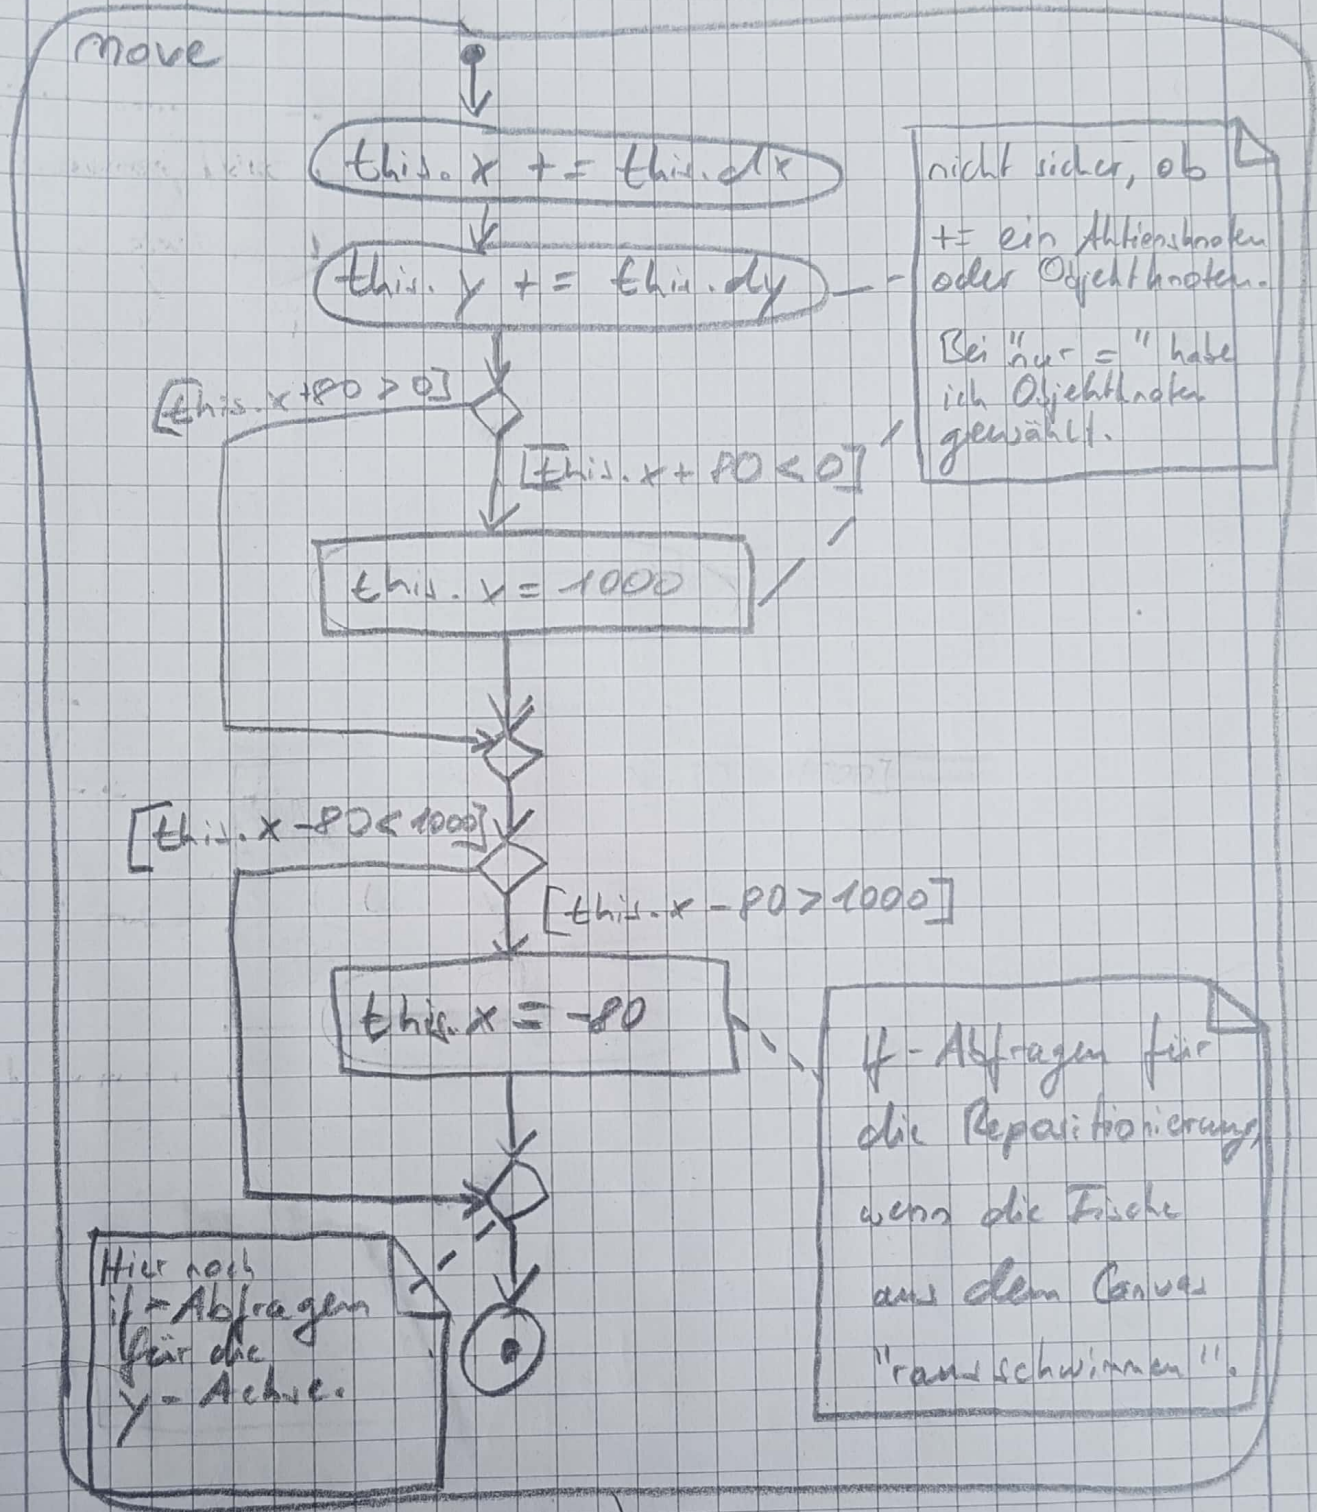 move
this.x += this.dx
this.y += this.dy
nicht sicher, ob
+= ein Aktionsknoten
oder Objektknoten.
Bei "nur =" habe
ich Objektknoten
gewählt.
[this.x+80>0]
[this.x+80<0]
this.x=1000
[this.x-80<1000]
[this.x-80>1000]
this.x = -80
if-Abfragen für
die Repositionierung,
wenn die Fische
aus dem Canvas
"rausschwimmen".
Hier noch
if-Abfragen
für die
y-Achse.